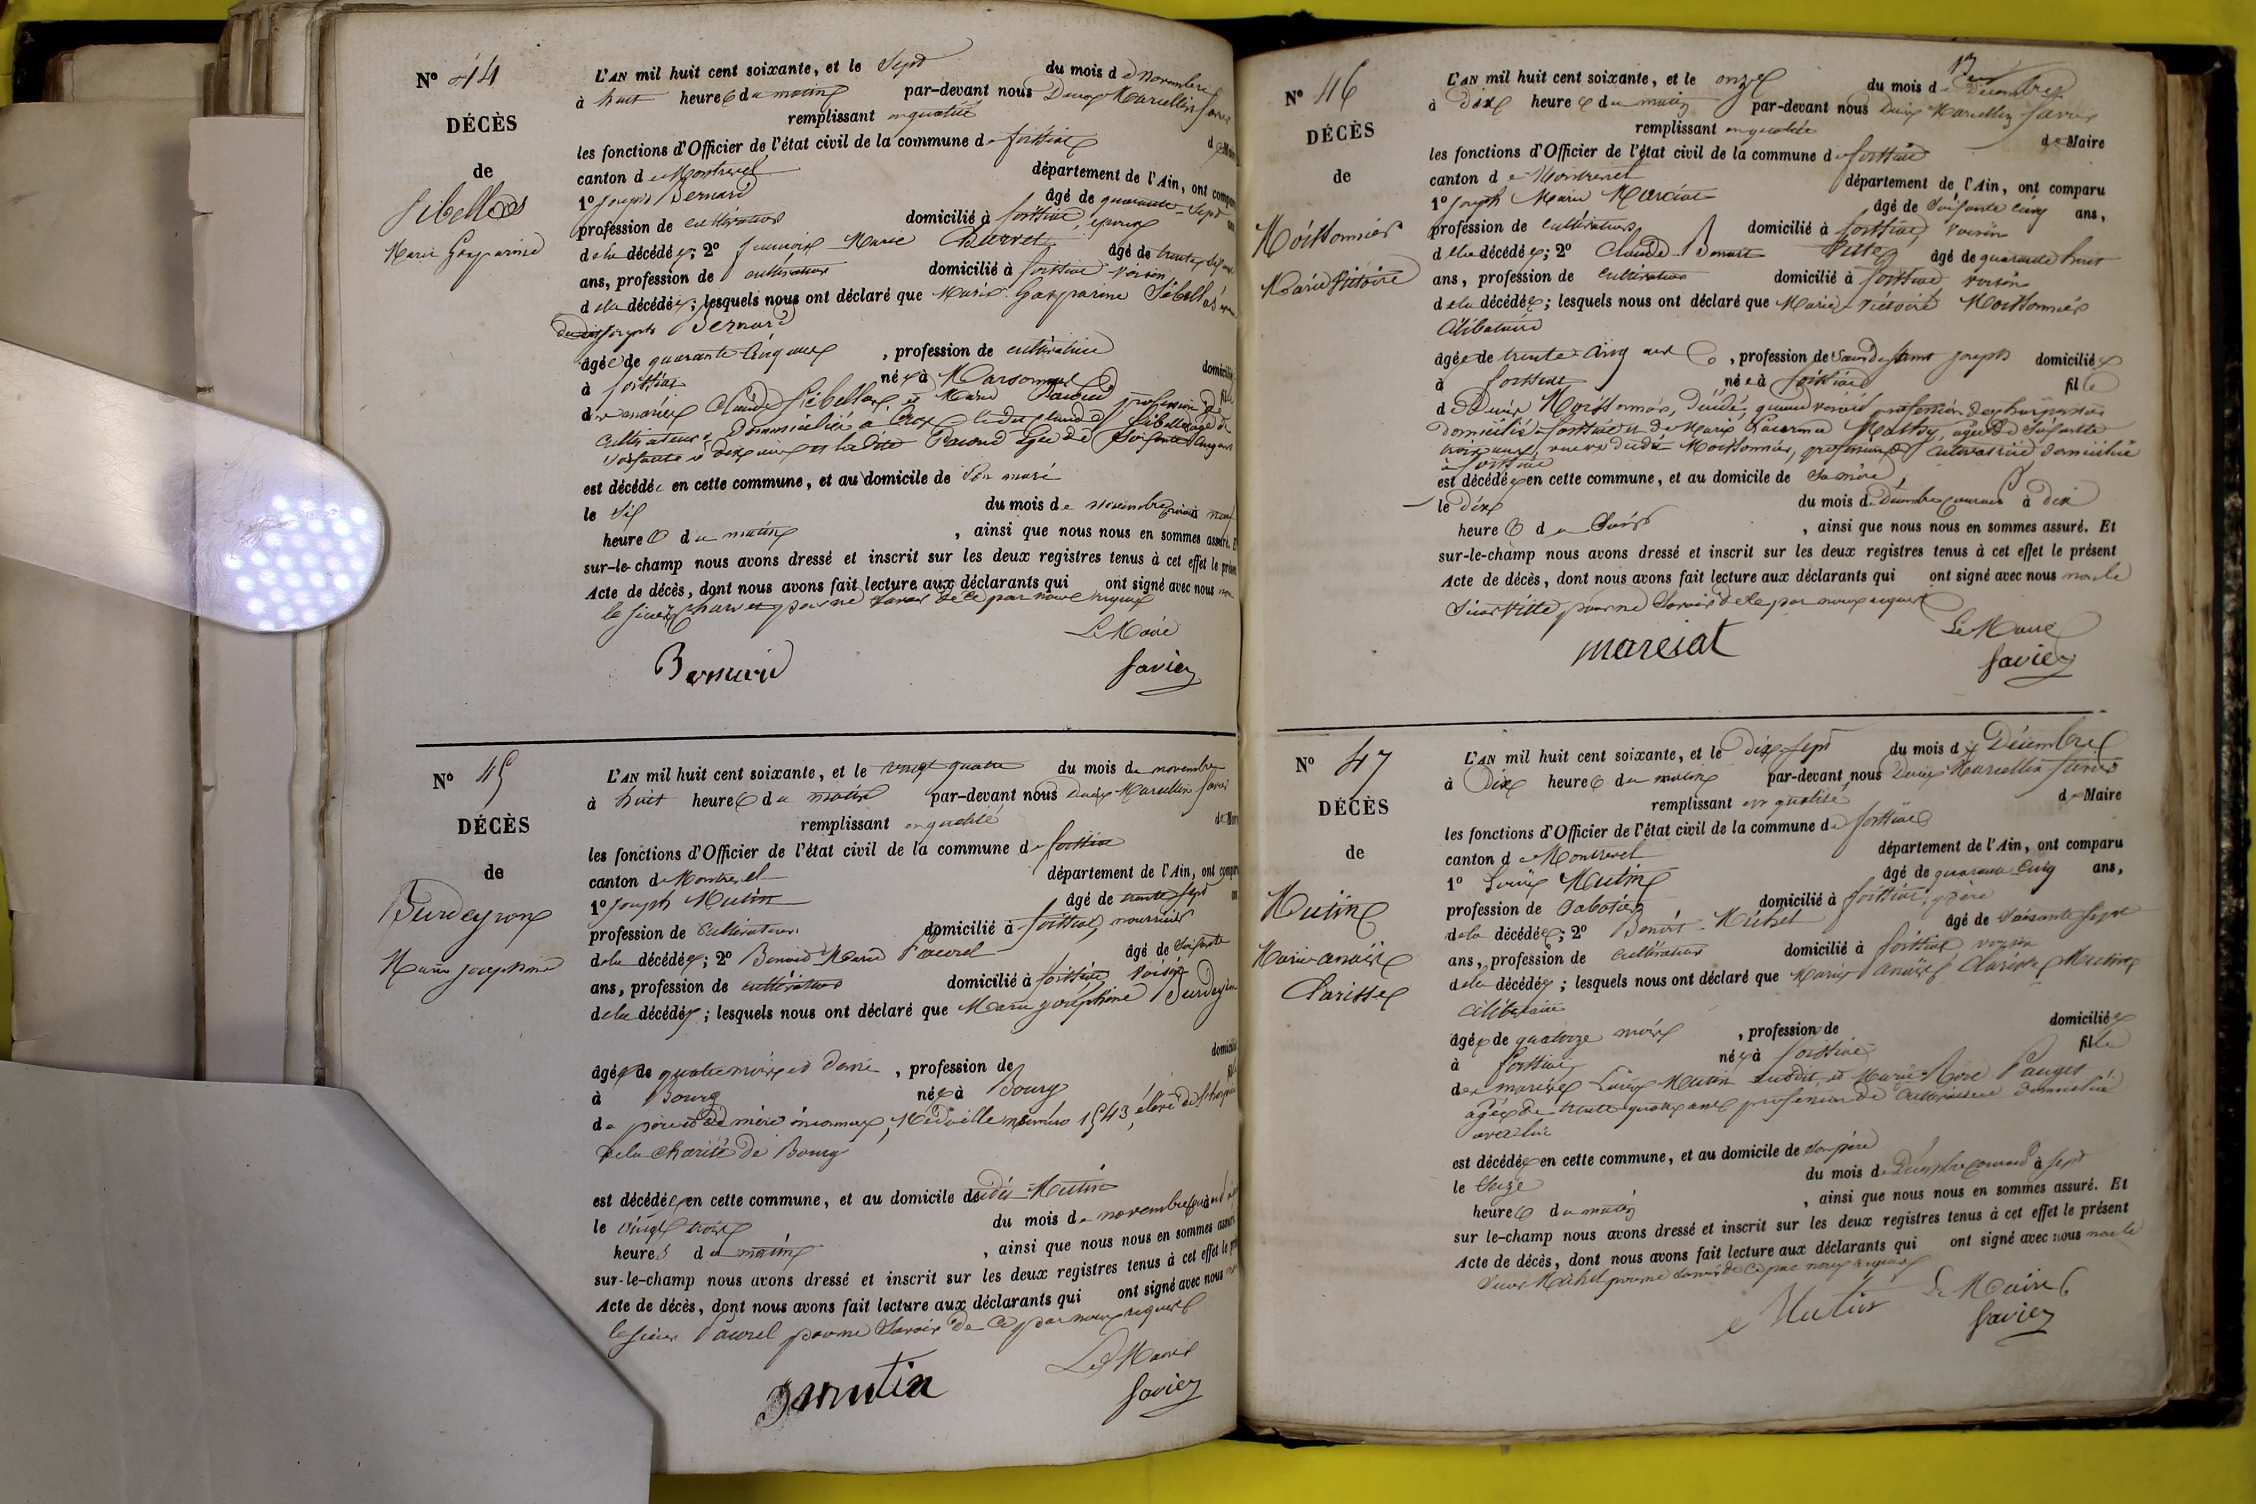 N° 44
DÉCÈS
de
Sibellas
Marie Gasparine
L'AN mil huit cent soixante, et le Sept du mois de novembre
à huit heures du matin par-devant nous Denis Marcellin Savie
remplissant en qualité de Maire
les fonctions d'Officier de l'état civil de la commune de foissiat
canton de Montrevel département de l'Ain, ont comparu
1° Joseph Bernard âgé de quarante Sept
profession de cultivateur domicilié à foissiat, époux
de la décédée; 2° françois Marie Charvet âgé de trente
ans, profession de cultivateur domicilié à foissiat voisin
de la décédée; lesquels nous ont déclaré que Marie Gasparine Sibellas
dudit joseph Bernard
âgée de quarante cinq ans, profession de cultivatrice domicilié
à foissiat née à Marsonnas
des mariés Claude Sibellas et Marie profession de
cultivateurs domiciliés à ledit Claude Sibellas âgé de
soixante et dix ans et la dite âgée de Soixante
est décédée en cette commune, et au domicile de Son mari
le Six du mois de novembre
heures du matin, ainsi que nous nous en sommes assuré. Et
sur-le-champ nous avons dressé et inscrit sur les deux registres tenus à cet effet le présent
Acte de décès, dont nous avons fait lecture aux déclarants qui ont signé avec nous non
le Sieur Charvet pour ne Savoir de ce par nous requis
Le Maire
Bernard
Savie
N° 45
DÉCÈS
de
Burdeyron
Marie josephine
L'AN mil huit cent soixante, et le vingt quatre du mois de novembre
à huit heures du matin par-devant nous Denis Marcellin Savie
remplissant en qualité de Maire
les fonctions d'Officier de l'état civil de la commune de foissiat
canton de Montrevel département de l'Ain, ont comparu
1° joseph Mutin âgé de trente sept
profession de cultivateur domicilié à foissiat, nourricier
de la décédée; 2° Benoit Marie Paurel âgé de Soixante
ans, profession de cultivateur domicilié à foissiat voisin
de la décédée; lesquels nous ont déclaré que Marie joséphine Burdeyron
âgée de quatre mois et demi, profession de domicilié
à Bourg née à Bourg
de père et de mère inconnus, Médaille numéro 1543, élève de
de la charité de Bourg
est décédée en cette commune, et au domicile dudit Mutin
le vingt trois du mois de novembre
heures du matin, ainsi que nous nous en sommes assuré
sur-le-champ nous avons dressé et inscrit sur les deux registres tenus à cet effet le
Acte de décès, dont nous avons fait lecture aux déclarants qui ont signé avec nous
le Sieur Paurel pour ne Savoir de ce par nous requis
Le Maire
Mutin
Savie
13
N° 46
DÉCÈS
de
Moissonnier
Marie Victoire
L'AN mil huit cent soixante, et le onze du mois de Décembre
à dix heures du matin par-devant nous Denis Marcellin Savie
remplissant en qualité de Maire
les fonctions d'Officier de l'état civil de la commune de foissiat
canton de Montrevel département de l'Ain, ont comparu
1° joseph Marie Marciat âgé de Soixante cinq ans,
profession de cultivateur domicilié à foissiat, voisin
de la décédée; 2° Claude Benoit Pitte âgé de quarante huit
ans, profession de cultivateur domicilié à foissiat voisin
de la décédée; lesquels nous ont déclaré que Marie Victoire Moissonnier
Célibataire
âgée de trente cinq ans, profession de Saint joseph domiciliée
à foissiat née à foissiat fille
de Denis Moissonnier, Décédé, quand vivait profession de
domicilié à foissiat et de Marie Laurence âgée de Soixante
trois ans, veuve dudit Moissonnier, profession de cultivatrice domiciliée
à foissiat
est décédée en cette commune, et au domicile de Sa mère,
le dix du mois de Décembre courant à dix
heures du Soir, ainsi que nous nous en sommes assuré. Et
sur-le-champ nous avons dressé et inscrit sur les deux registres tenus à cet effet le présent
Acte de décès, dont nous avons fait lecture aux déclarants qui ont signé avec nous non le
Sieur Pitte pour ne Savoir de ce par nous requis
Le Maire
marciat
Savie
N° 47
DÉCÈS
de
Mutin
Marie anaïs
Clarisse
L'AN mil huit cent soixante, et le Dix Sept du mois de Décembre
à Dix heures du matin par-devant nous Denis Marcellin Savie
remplissant en qualité de Maire
les fonctions d'Officier de l'état civil de la commune de foissiat
canton de Montrevel département de l'Ain, ont comparu
1° Louis Mutin âgé de quarante cinq ans,
profession de Sabotier domicilié à foissiat, père
de la décédée; 2° Benoit Michel âgé de Soixante Sept
ans, profession de cultivateur domicilié à foissiat voisin
de la décédée; lesquels nous ont déclaré que Marie anaïs Clarisse Mutin
célibataire
âgée de quatorze mois, profession de domiciliée
à foissiat née à foissiat fille
des mariés Louis Mutin Susdit et Marie Rose Pauget
âgée de trente quatre ans profession de cultivatrice domiciliée
avec lui
est décédée en cette commune, et au domicile de Son père
le Seize du mois de Décembre courant à Sept
heures du matin, ainsi que nous nous en sommes assuré. Et
sur le-champ nous avons dressé et inscrit sur les deux registres tenus à cet effet le présent
Acte de décès, dont nous avons fait lecture aux déclarants qui ont signé avec nous non le
Sieur Michel pour ne Savoir de ce par nous requis
Le Maire
Mutin
Savie